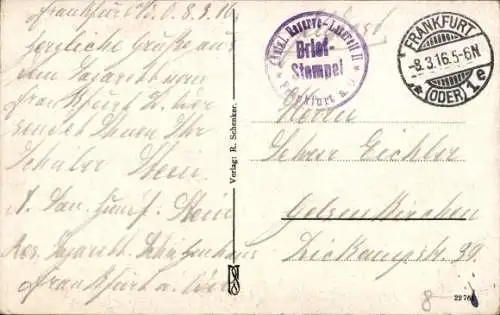 Frankfurt a/O. 8.3.16
Herzliche Grüße aus
dem Lazarett von
Frankfurt a. Oder
sendet Ihnen Ihr
Schüler Stein
Stein
Res. Lazarett Schützenhaus
Frankfurt a. Oder
Verlag: R. Schenker.
Königl. Reserve-Lazarett II
Brief-
Stempel
Frankfurt a. O.
FRANKFURT
-8.3.16.5-6N.
* (ODER) 1e
Herrn
Lehrer Eichler
Gelsenkirchen
39.
8